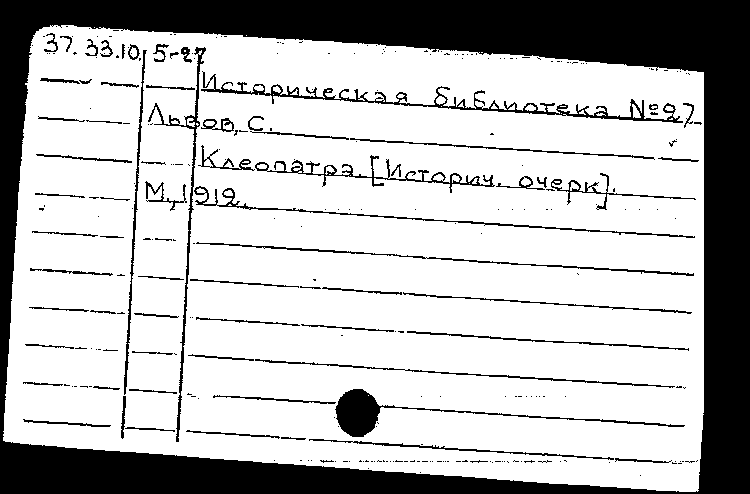 37. 33.10. 5-27
Историческая библиотека №27
Львов, С.
Клеопатра. [Историч. очерк].
М., 1912.